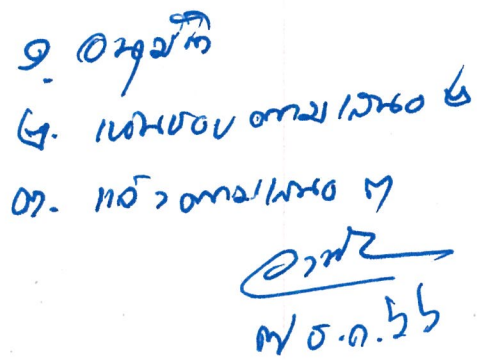 ๑. อนุมัติ
๒. เห็นชอบตามเสนอ ๒
๓. แล้วตามเสนอ ๓
๗ ธ.ค. ๖๖